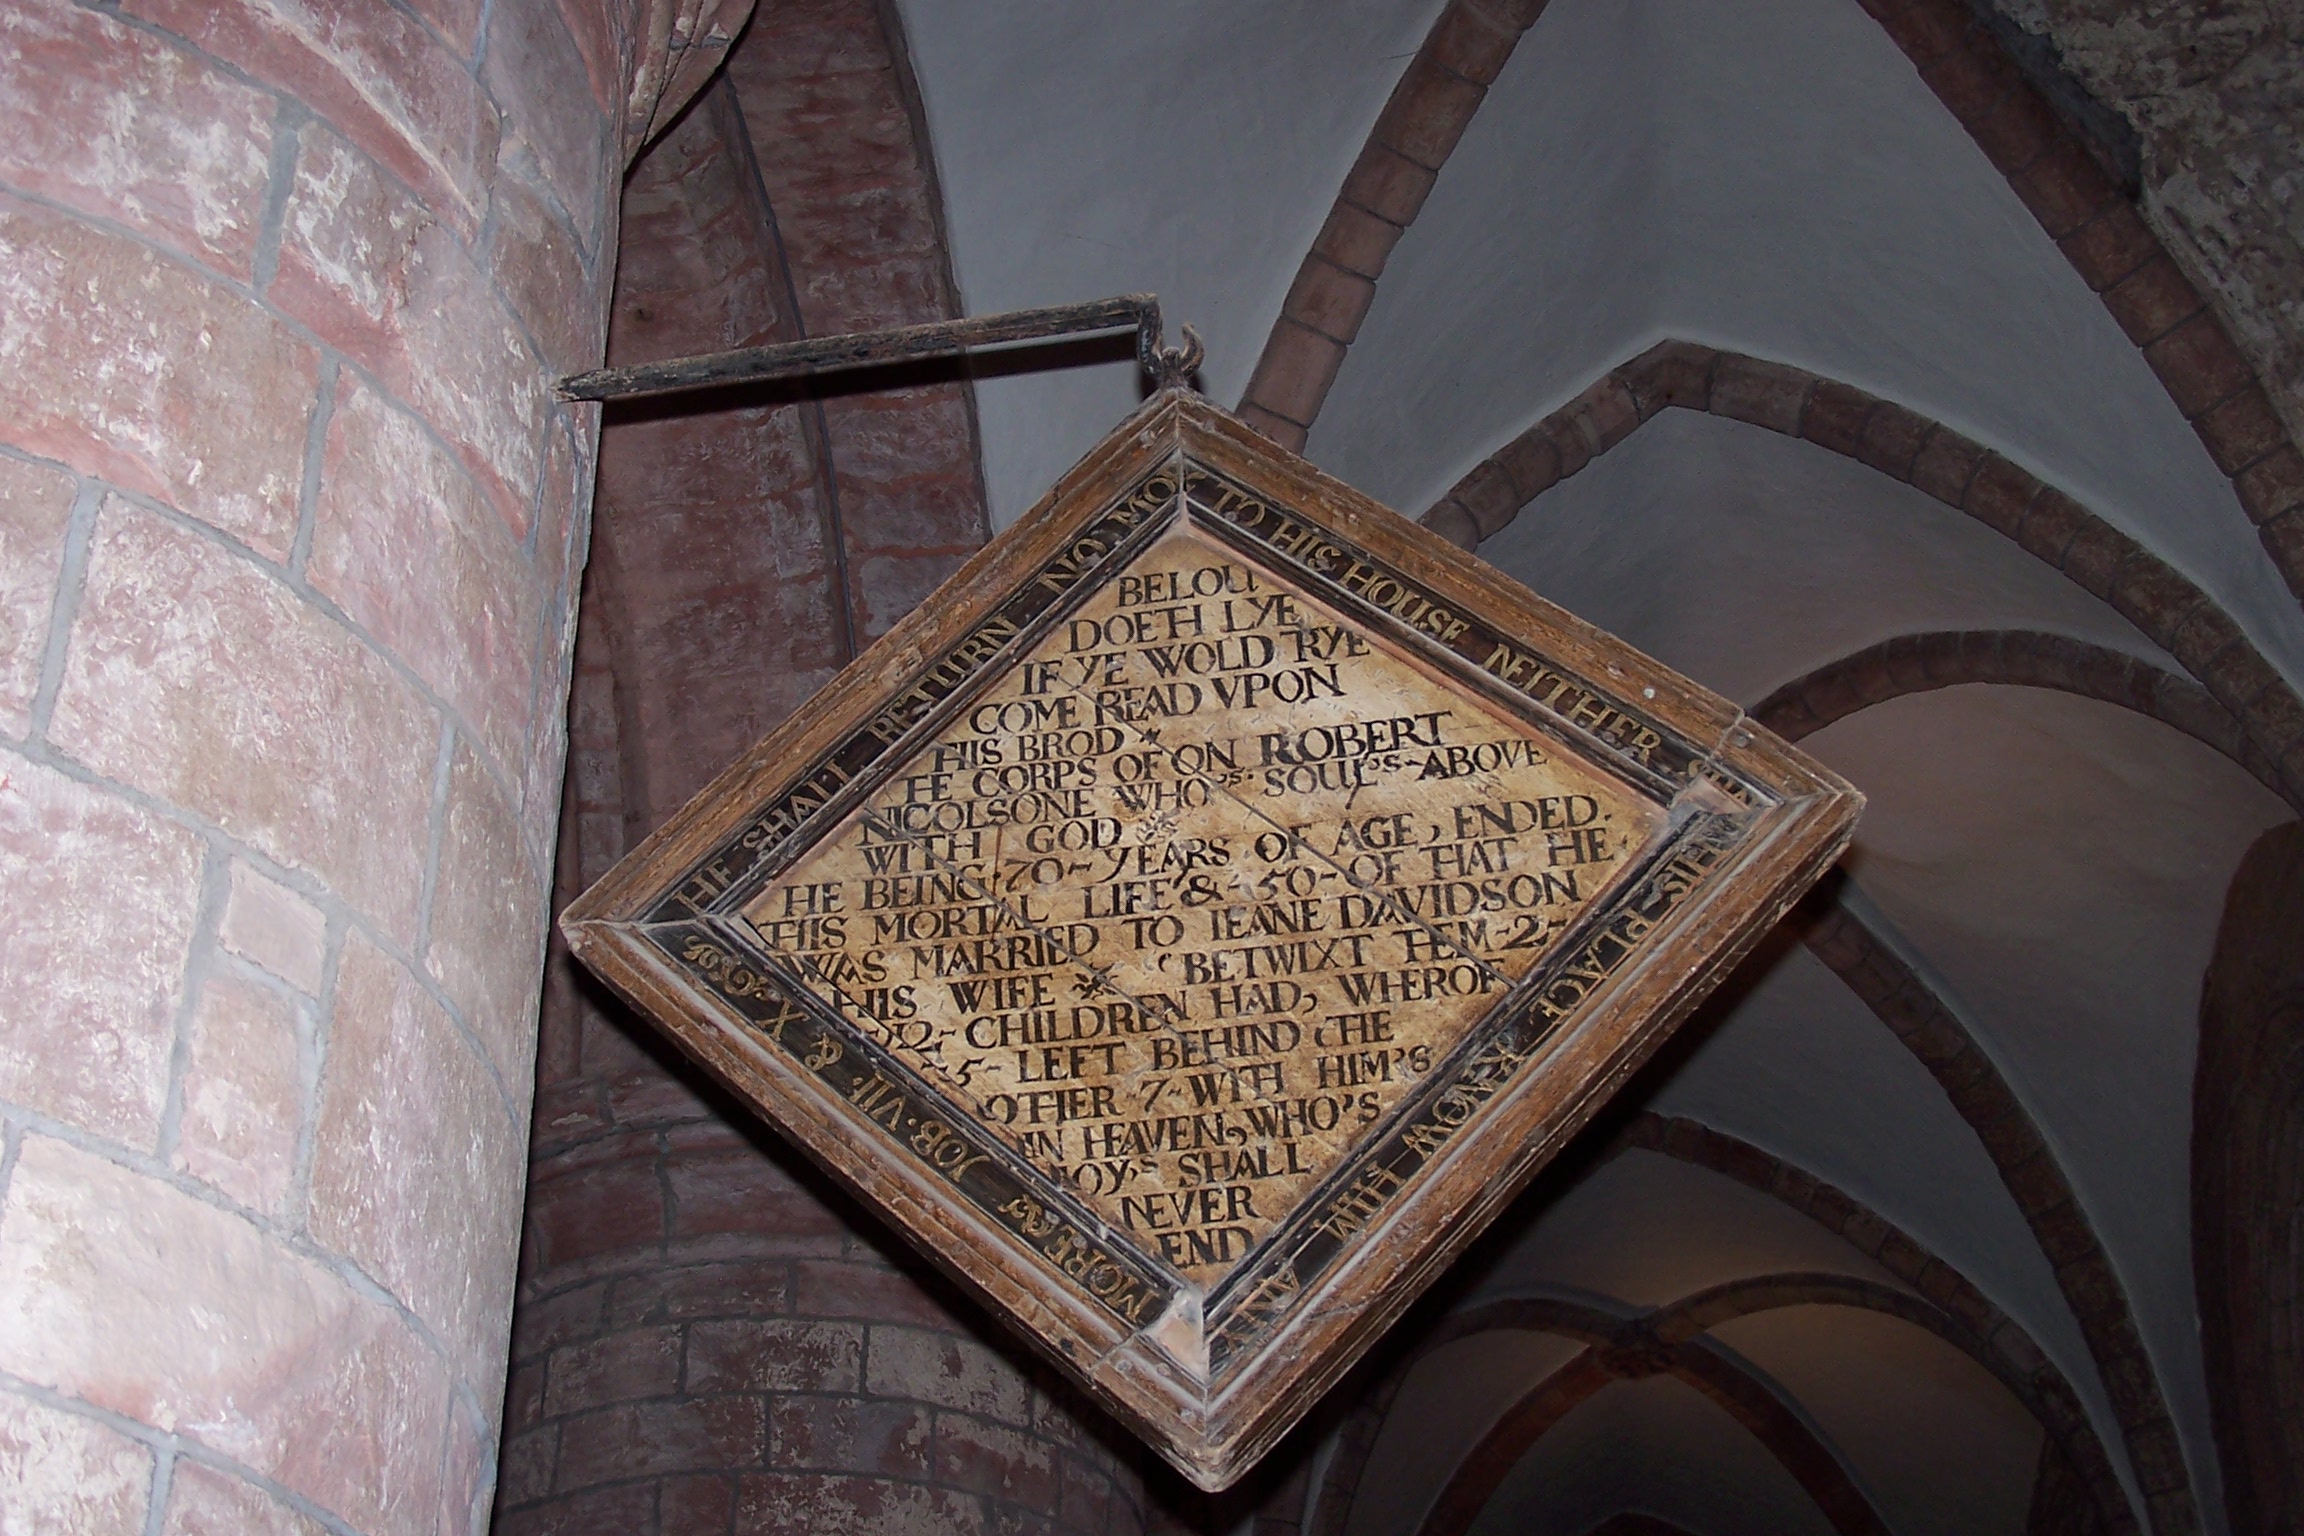 HE SHALL RETURN NO MOR
TO HIS HOUSE NEITHER SHALL
HIS PLACE KNOW HIM ANY
MORE JOB·VII· & X·
BELOU
DOETH LYE
IF YE WOLD TRYE
COME READ VPON
THIS BROD
THE CORPS OF ON ROBERT
NICOLSONE WHO'S· SOUL'S ABOVE
WITH GOD
HE BEING 70~ YEARS OF AGE, ENDED·
THIS MORTAL LIFE & ~50~ OF THAT HE
WAS MARRIED TO IEANE DAVIDSON
HIS WIFE BETWIXT THEM~2~
~12~ CHILDREN HAD, WHEROF
~5~ LEFT BEHIND THE
OTHER ~7~ WITH HIM'S
IN HEAVEN, WHO'S
IOY'S SHALL
NEVER
END